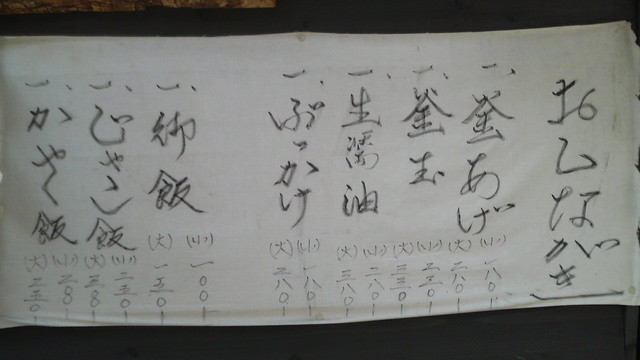 おしながき
一、釜あげ
(小)一八〇ー
(大)二八〇ー
一、釜玉
(小)二三〇ー
(大)三三〇ー
一、生醤油
(小)二八〇ー
(大)三八〇ー
一、ぶっかけ
(小)一八〇ー
(大)二八〇ー
一、御飯
(小)一〇〇ー
(大)
一、じゃこ飯
(小)
(大)
一、かやく飯
(小)
(大)